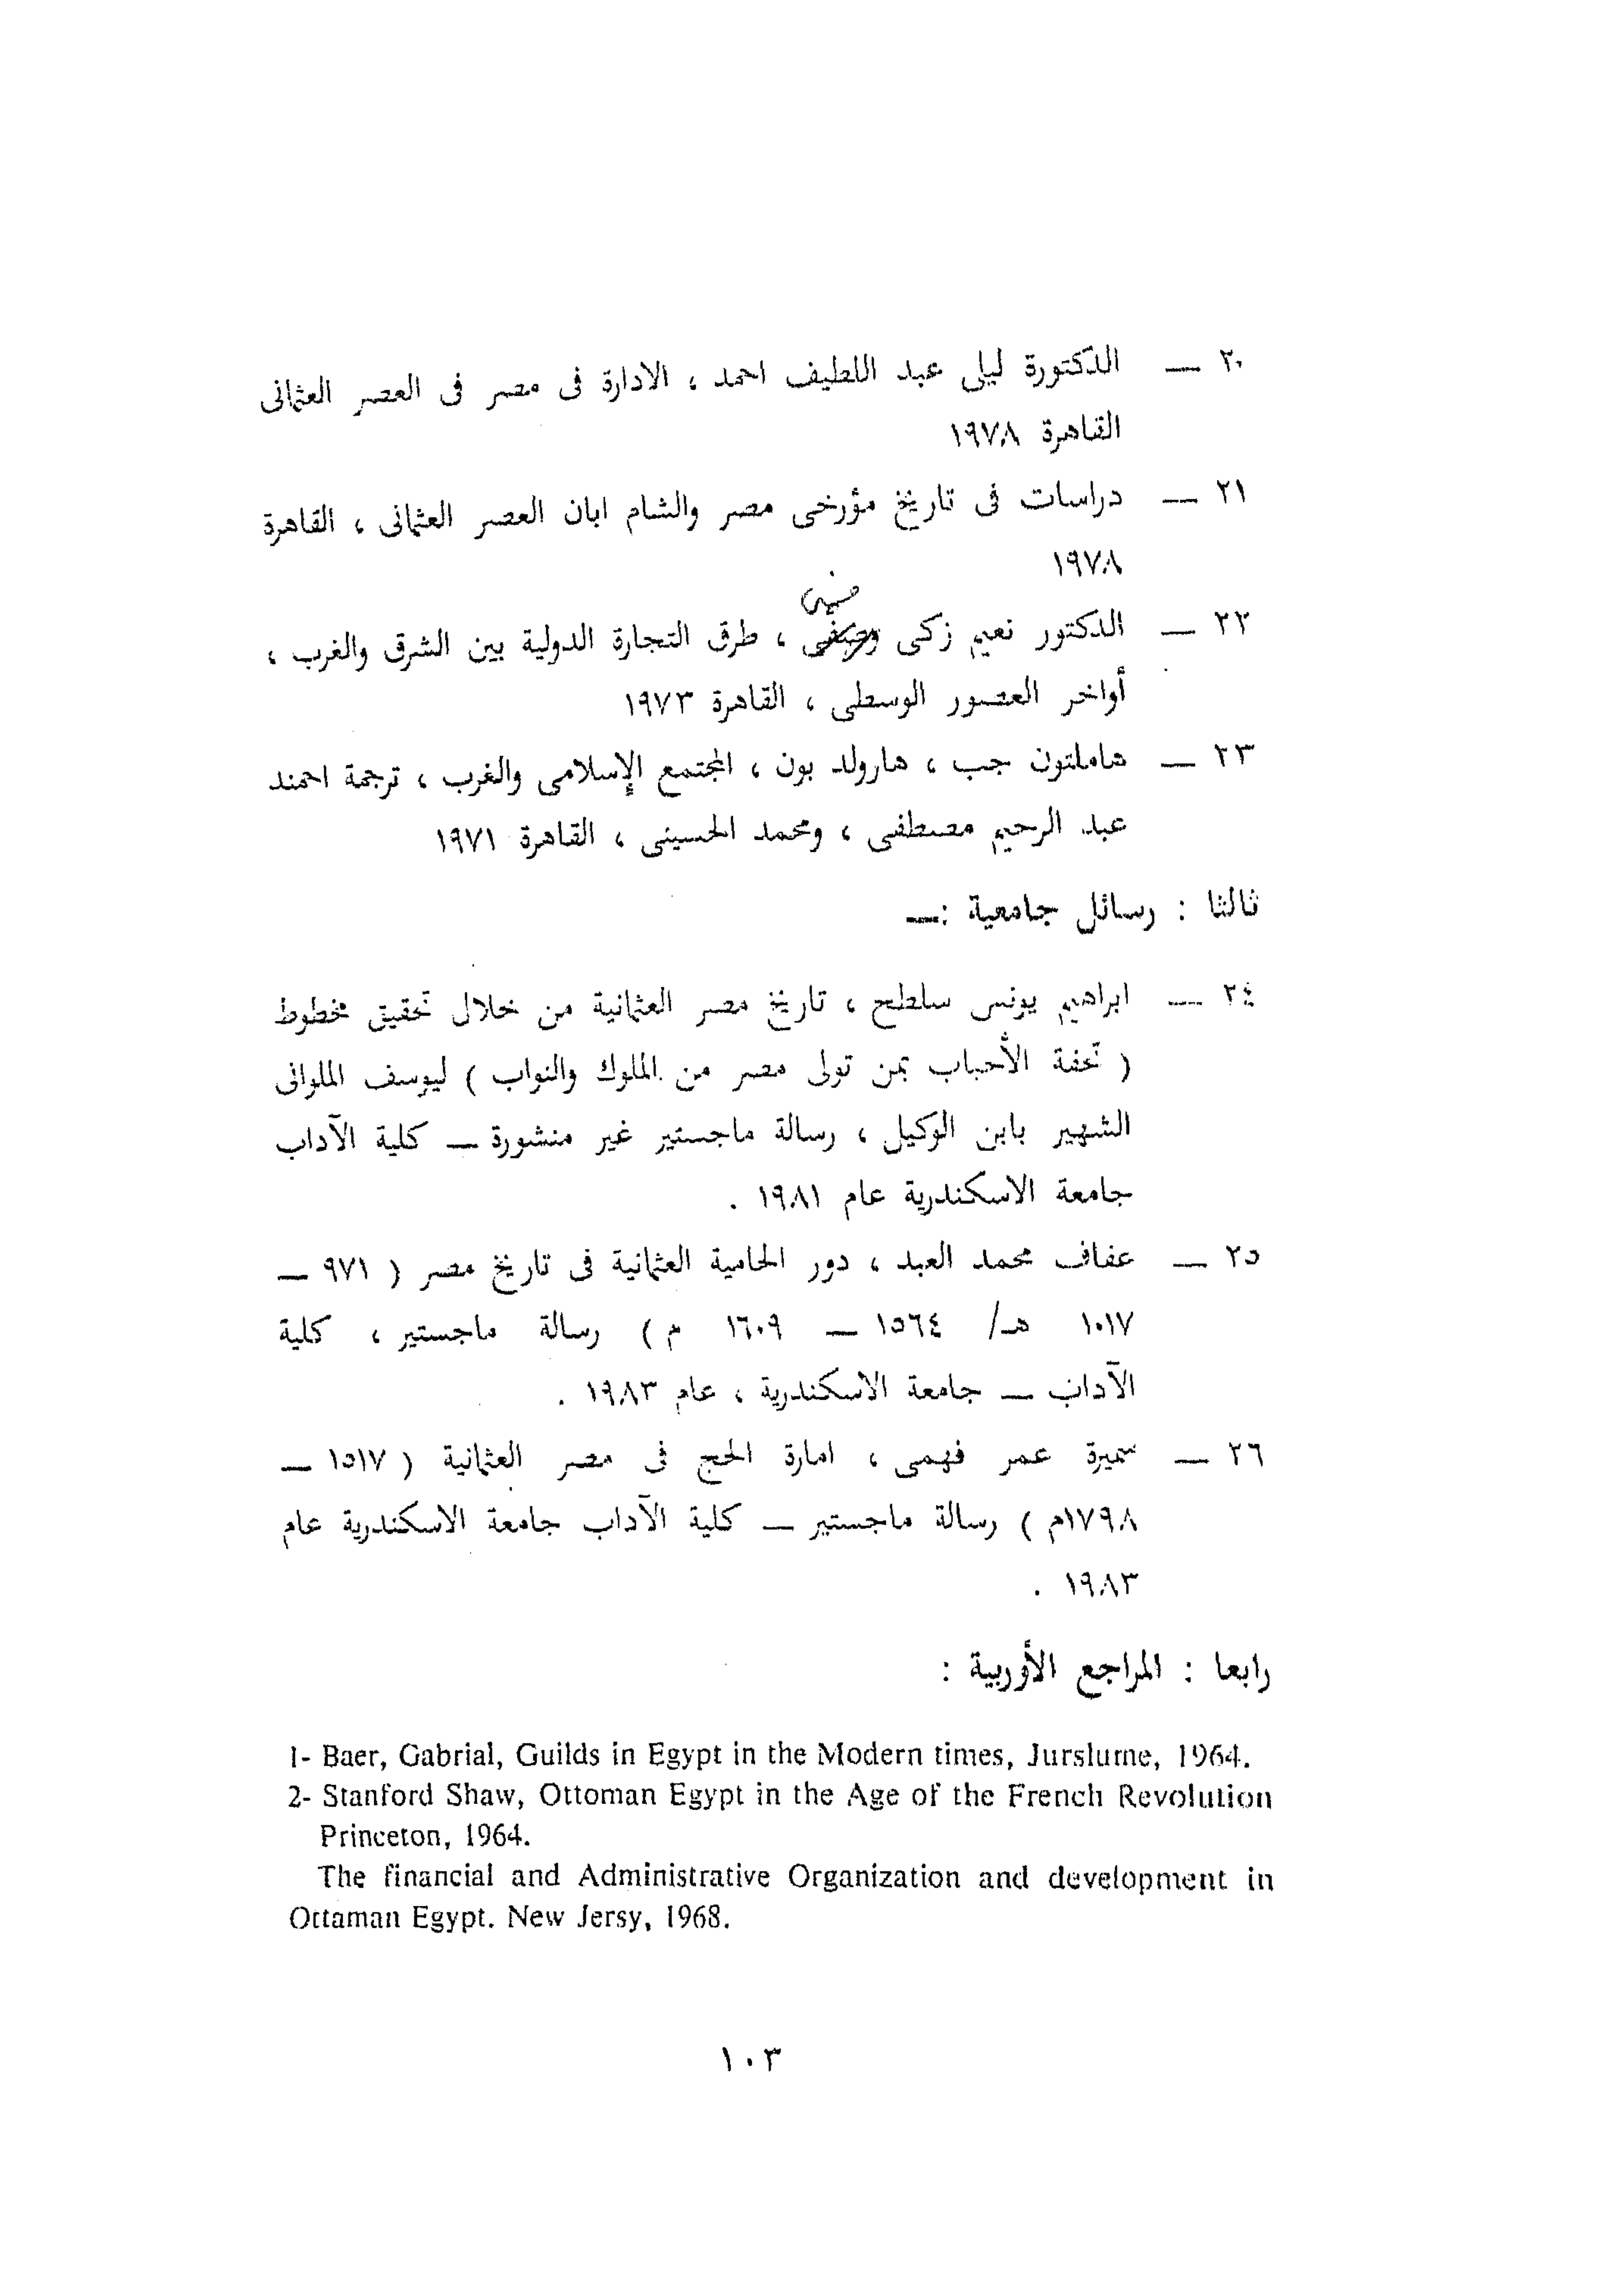 ٢٠ — الدكتورة ليلى عبد اللطيف احمد ، الادارة فى مصر فى العصر العثمانى
القاهرة ١٩٧٨
٢١ — دراسات فى تاريخ مؤرخى مصر والشام ابان العصر العثمانى ، القاهرة
١٩٧٨
٢٢ — الدكتور نعيم زكى ، طرق التجارة الدولية بين الشرق والغرب ،
أواخر العصور الوسطى ، القاهرة ١٩٧٣
٢٣ — هاملتون جب ، هارولد بون ، المجتمع الإسلامى والغرب ، ترجمة احمد
عبد الرحيم مصطفى ، ومحمد الحسينى ، القاهرة ١٩٧١
ثالثا : رسائل جامعية :—
٢٤ — ابراهيم يونس سلطح ، تاريخ مصر العثمانية من خلال تحقيق مخطوط
( تحفة الأحباب بمن تولى مصر من الملوك والنواب ) ليوسف الملوانى
الشهير بابن الوكيل ، رسالة ماجستير غير منشورة — كلية الآداب
جامعة الاسكندرية عام ١٩٨١ .
٢٥ — عفاف محمد العبد ، دور الحامية العثمانية فى تاريخ مصر ( ٩٧١ —
١٠١٧ هـ/ ١٥٦٤ — ١٦٠٩ م ) رسالة ماجستير ، كلية
الآداب — جامعة الاسكندرية ، عام ١٩٨٣ .
٢٦ — سميرة عمر فهمى ، امارة الحج فى مصر العثمانية ( ١٥١٧ —
١٧٩٨م ) رسالة ماجستير — كلية الآداب جامعة الاسكندرية عام
١٩٨٣ .
رابعا : المراجع الأوربية :
1- Baer, Gabrial, Guilds in Egypt in the Modern times, Jurslurne, 1964.
2- Stanford Shaw, Ottoman Egypt in the Age of the French Revolution
Princeton, 1964.
The financial and Administrative Organization and development in
Ottaman Egypt. New Jersy, 1968.
١٠٣